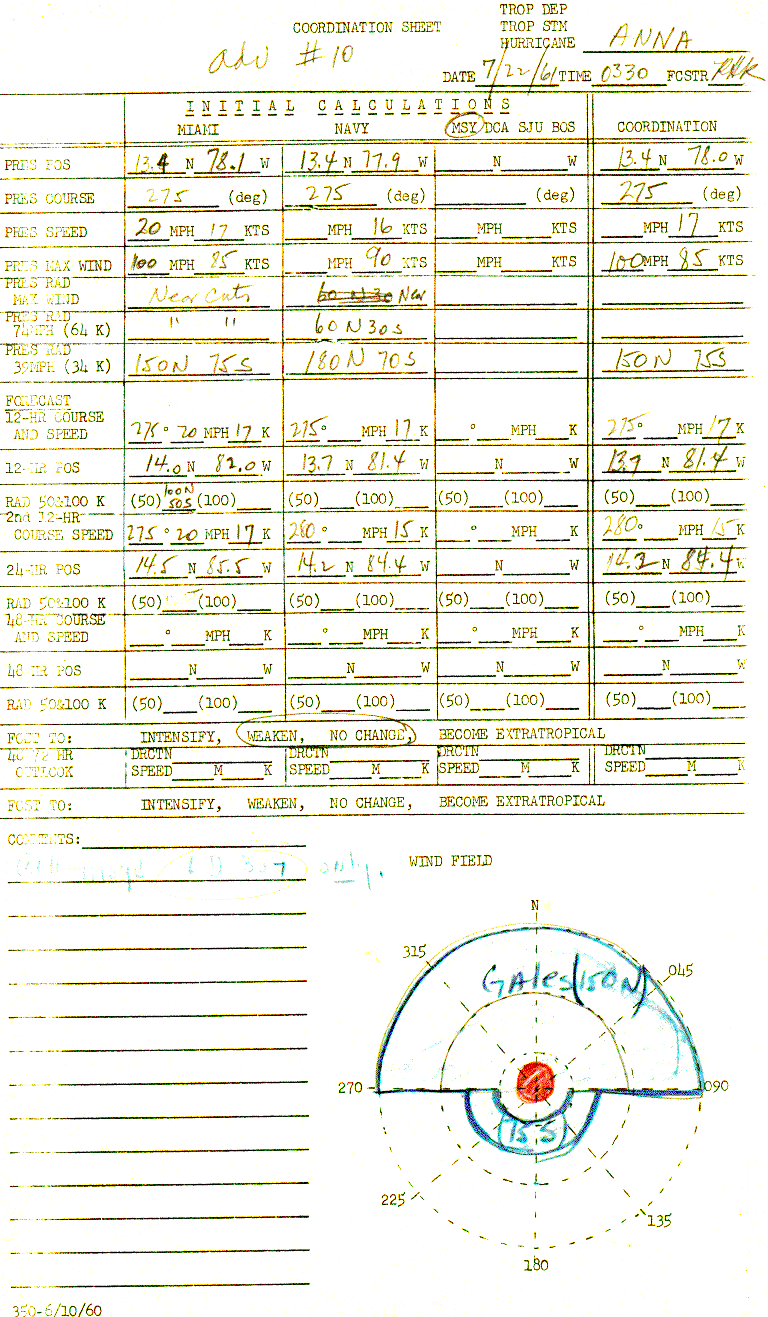 TROP DEP
COORDINATION SHEET TROP STM
adv #10 HURRICANE ANNA
DATE 7/22/61 TIME 0330 FCSTR RHK
INITIAL CALCULATIONS
MIAMI NAVY MSY DCA SJU BOS COORDINATION
PRES POS 13.4 N 78.1 W 13.4 N 77.9 W N W 13.4 N 78.0 W
PRES COURSE 275 (deg) 275 (deg) (deg) 275 (deg)
PRES SPEED 20 MPH 17 KTS MPH 16 KTS MPH KTS MPH 17 KTS
PRES MAX WIND 100 MPH 85 KTS MPH 90 KTS MPH KTS 100 MPH 85 KTS
PRES RAD
MAX WIND Near Cntr 60 N 30 Near
PRES RAD
74MPH (64 K) " " 60 N 30 S
PRES RAD
39MPH (34 K) 150N 75S 180N 70S 150N 75S
FORECAST
12-HR COURSE
AND SPEED 275° 20 MPH 17 K 275° MPH 17 K ° MPH K 275° MPH 17 K
12-HR POS 14.0 N 82.0 W 13.7 N 81.4 W N W 13.7 N 81.4 W
RAD 50&100 K (50) 100N 50S (100) (50) (100) (50) (100) (50) (100)
2nd 12-HR
COURSE SPEED 275° 20 MPH 17 K 280° MPH 15 K ° MPH K 280° MPH 15 K
24-HR POS 14.5 N 85.5 W 14.2 N 84.4 W N W 14.2 N 84.4 W
RAD 50&100 K (50) (100) (50) (100) (50) (100) (50) (100)
48-HR COURSE
AND SPEED ° MPH K ° MPH K ° MPH K ° MPH K
48 HR POS N W N W N W N W
RAD 50&100 K (50) (100) (50) (100) (50) (100) (50) (100)
FCST TO: INTENSIFY, WEAKEN, NO CHANGE, BECOME EXTRATROPICAL
48 72 HR DRCTN DRCTN DRCTN DRCTN
OUTLOOK SPEED M K SPEED M K SPEED M K SPEED M K
FCST TO: INTENSIFY, WEAKEN, NO CHANGE, BECOME EXTRATROPICAL
COMMENTS:
WIND FIELD
N
315 045
Gales (150N)
270 090
(75S)
225 135
180
350-6/10/60